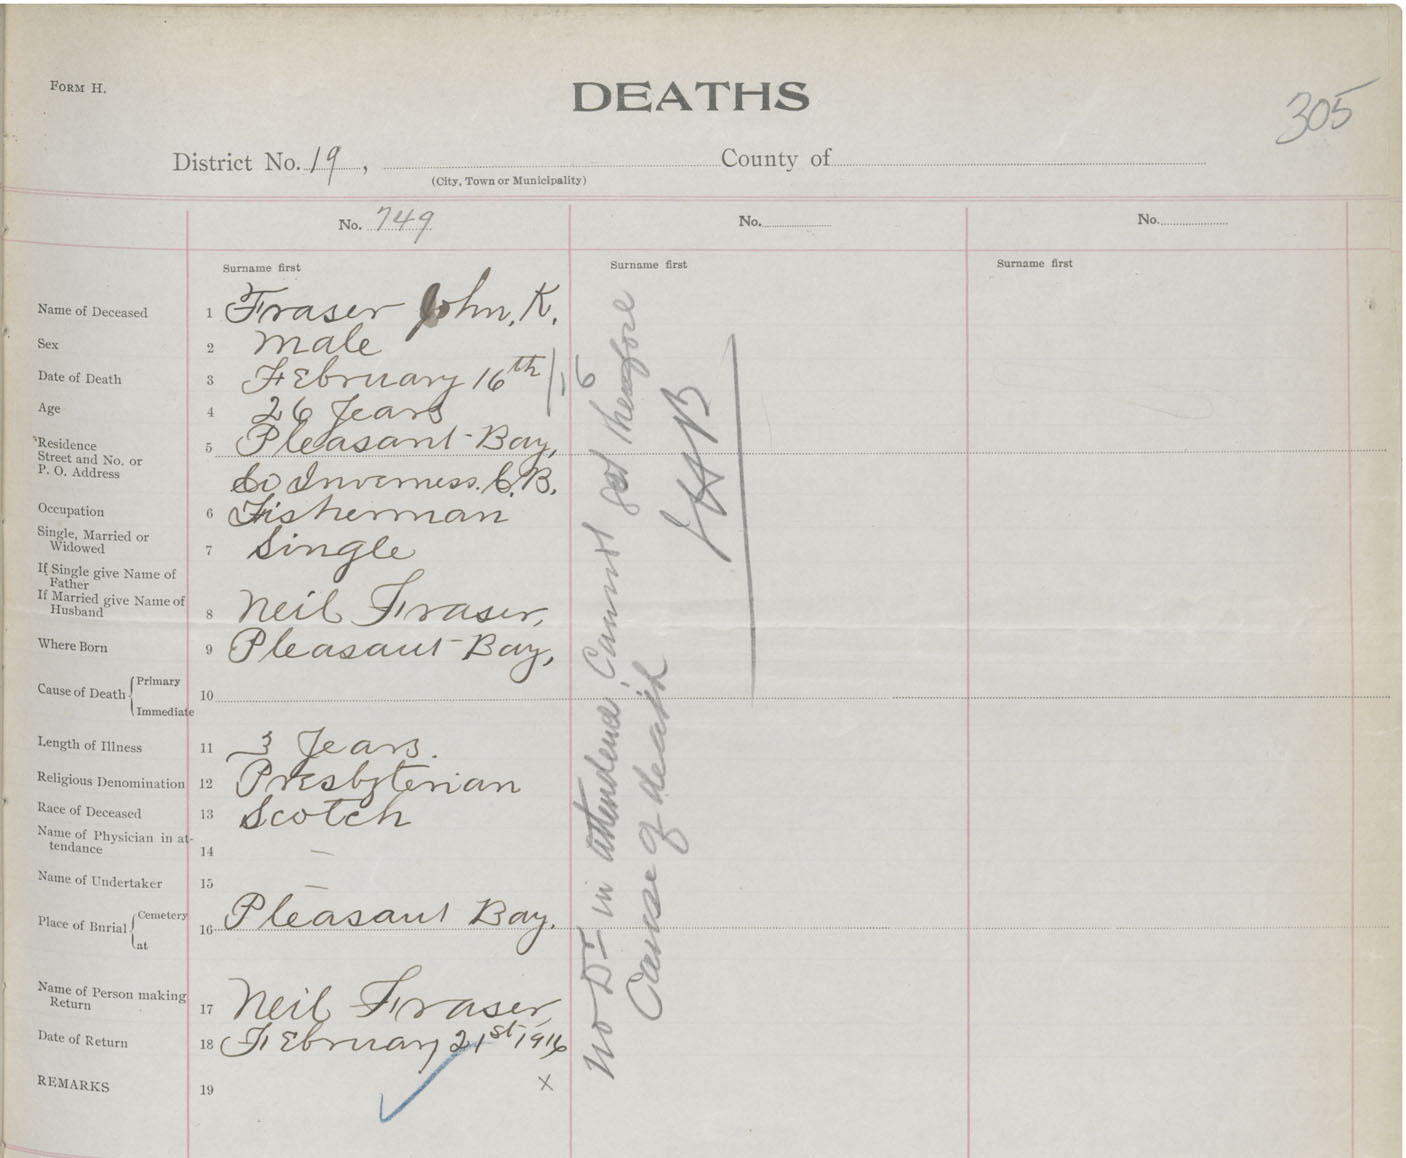 FORM H.
DEATHS
305
District No. 19, County of
(City, Town or Municipality)
No. 749 No. No.
Surname first Surname first Surname first
Name of Deceased 1 Fraser John. K.
Sex 2 male
Date of Death 3 February 16th / 15
Age 4 26 Years
Residence
Street and No. or
P. O. Address 5 Pleasant Bay,
Co Inverness. C. B.
Occupation 6 Fisherman
Single, Married or
Widowed 7 Single
If Single give Name of
Father
If Married give Name of
Husband 8 Neil Fraser,
Where Born 9 Pleasant Bay,
Cause of Death { Primary
Immediate 10
Length of Illness 11 3 Years.
Religious Denomination 12 Presbyterian
Race of Deceased 13 Scotch
Name of Physician in at-
tendance 14 —
Name of Undertaker 15 —
Place of Burial { Cemetery
at 16 Pleasant Bay.
Name of Person making
Return 17 Neil Fraser,
Date of Return 18 February 21st 1916
REMARKS 19 x
No Dr in attendend Cannot get therefore
Cause of death